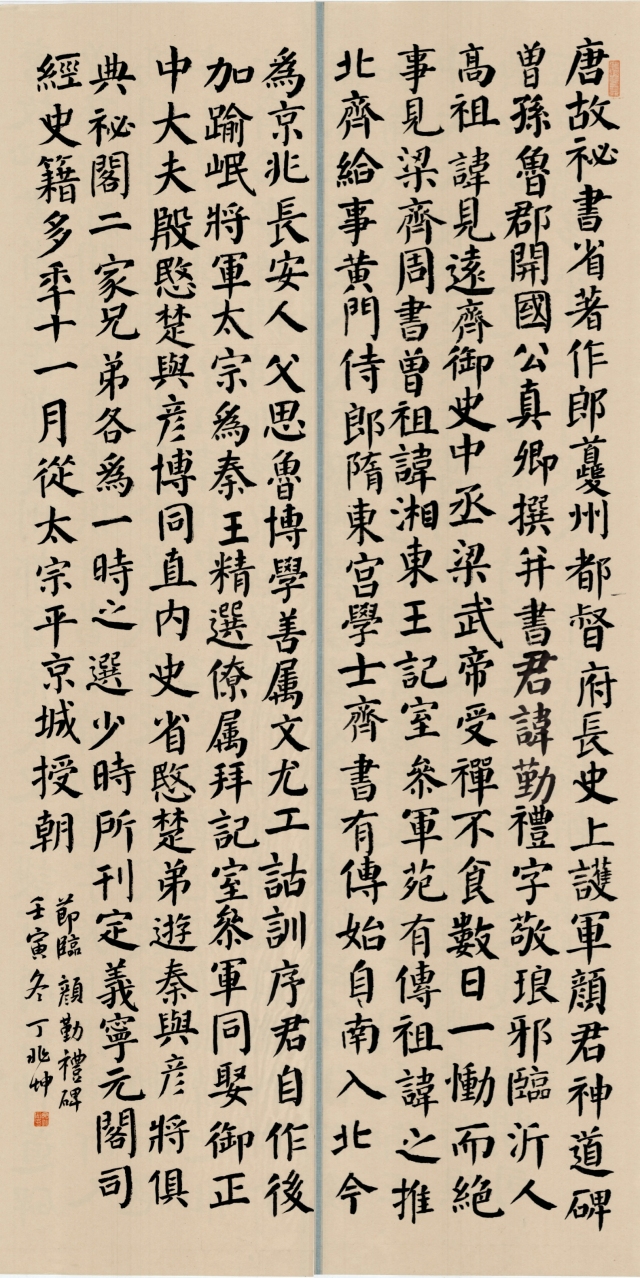 唐故祕書省著作郎夔州都督府長史上護軍顏君神道碑
曾孫魯郡開國公真卿撰并書君諱勤禮字敬琅邪臨沂人
高祖諱見遠齊御史中丞梁武帝受禪不食數日一慟而絕
事見梁齊周書曾祖諱湘東王記室參軍苑有傳祖諱之推
北齊給事黃門侍郎隋東宮學士齊書有傳始自南入北今
為京兆長安人父思魯博學善屬文尤工詁訓序君自作後
加踰岷將軍太宗為秦王精選僚屬拜記室參軍同娶御正
中大夫殷愍楚與彥博同直內史省愍楚弟遊秦與彥將俱
典祕閣二家兄弟各為一時之選少時所刊定義寧元閣司
經史籍多年十一月從太宗平京城授朝
節臨 顏勤禮碑
壬寅冬丁兆坤